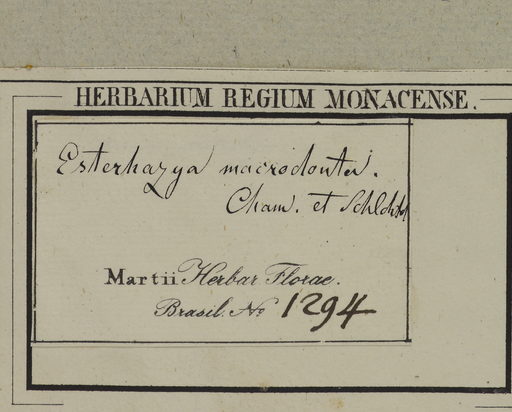 HERBARIUM REGIUM MONACENSE.
Esterhazya macrodonta.
Cham. et Schlchtd
Martii Herbar. Florae.
Brasil. No 1294